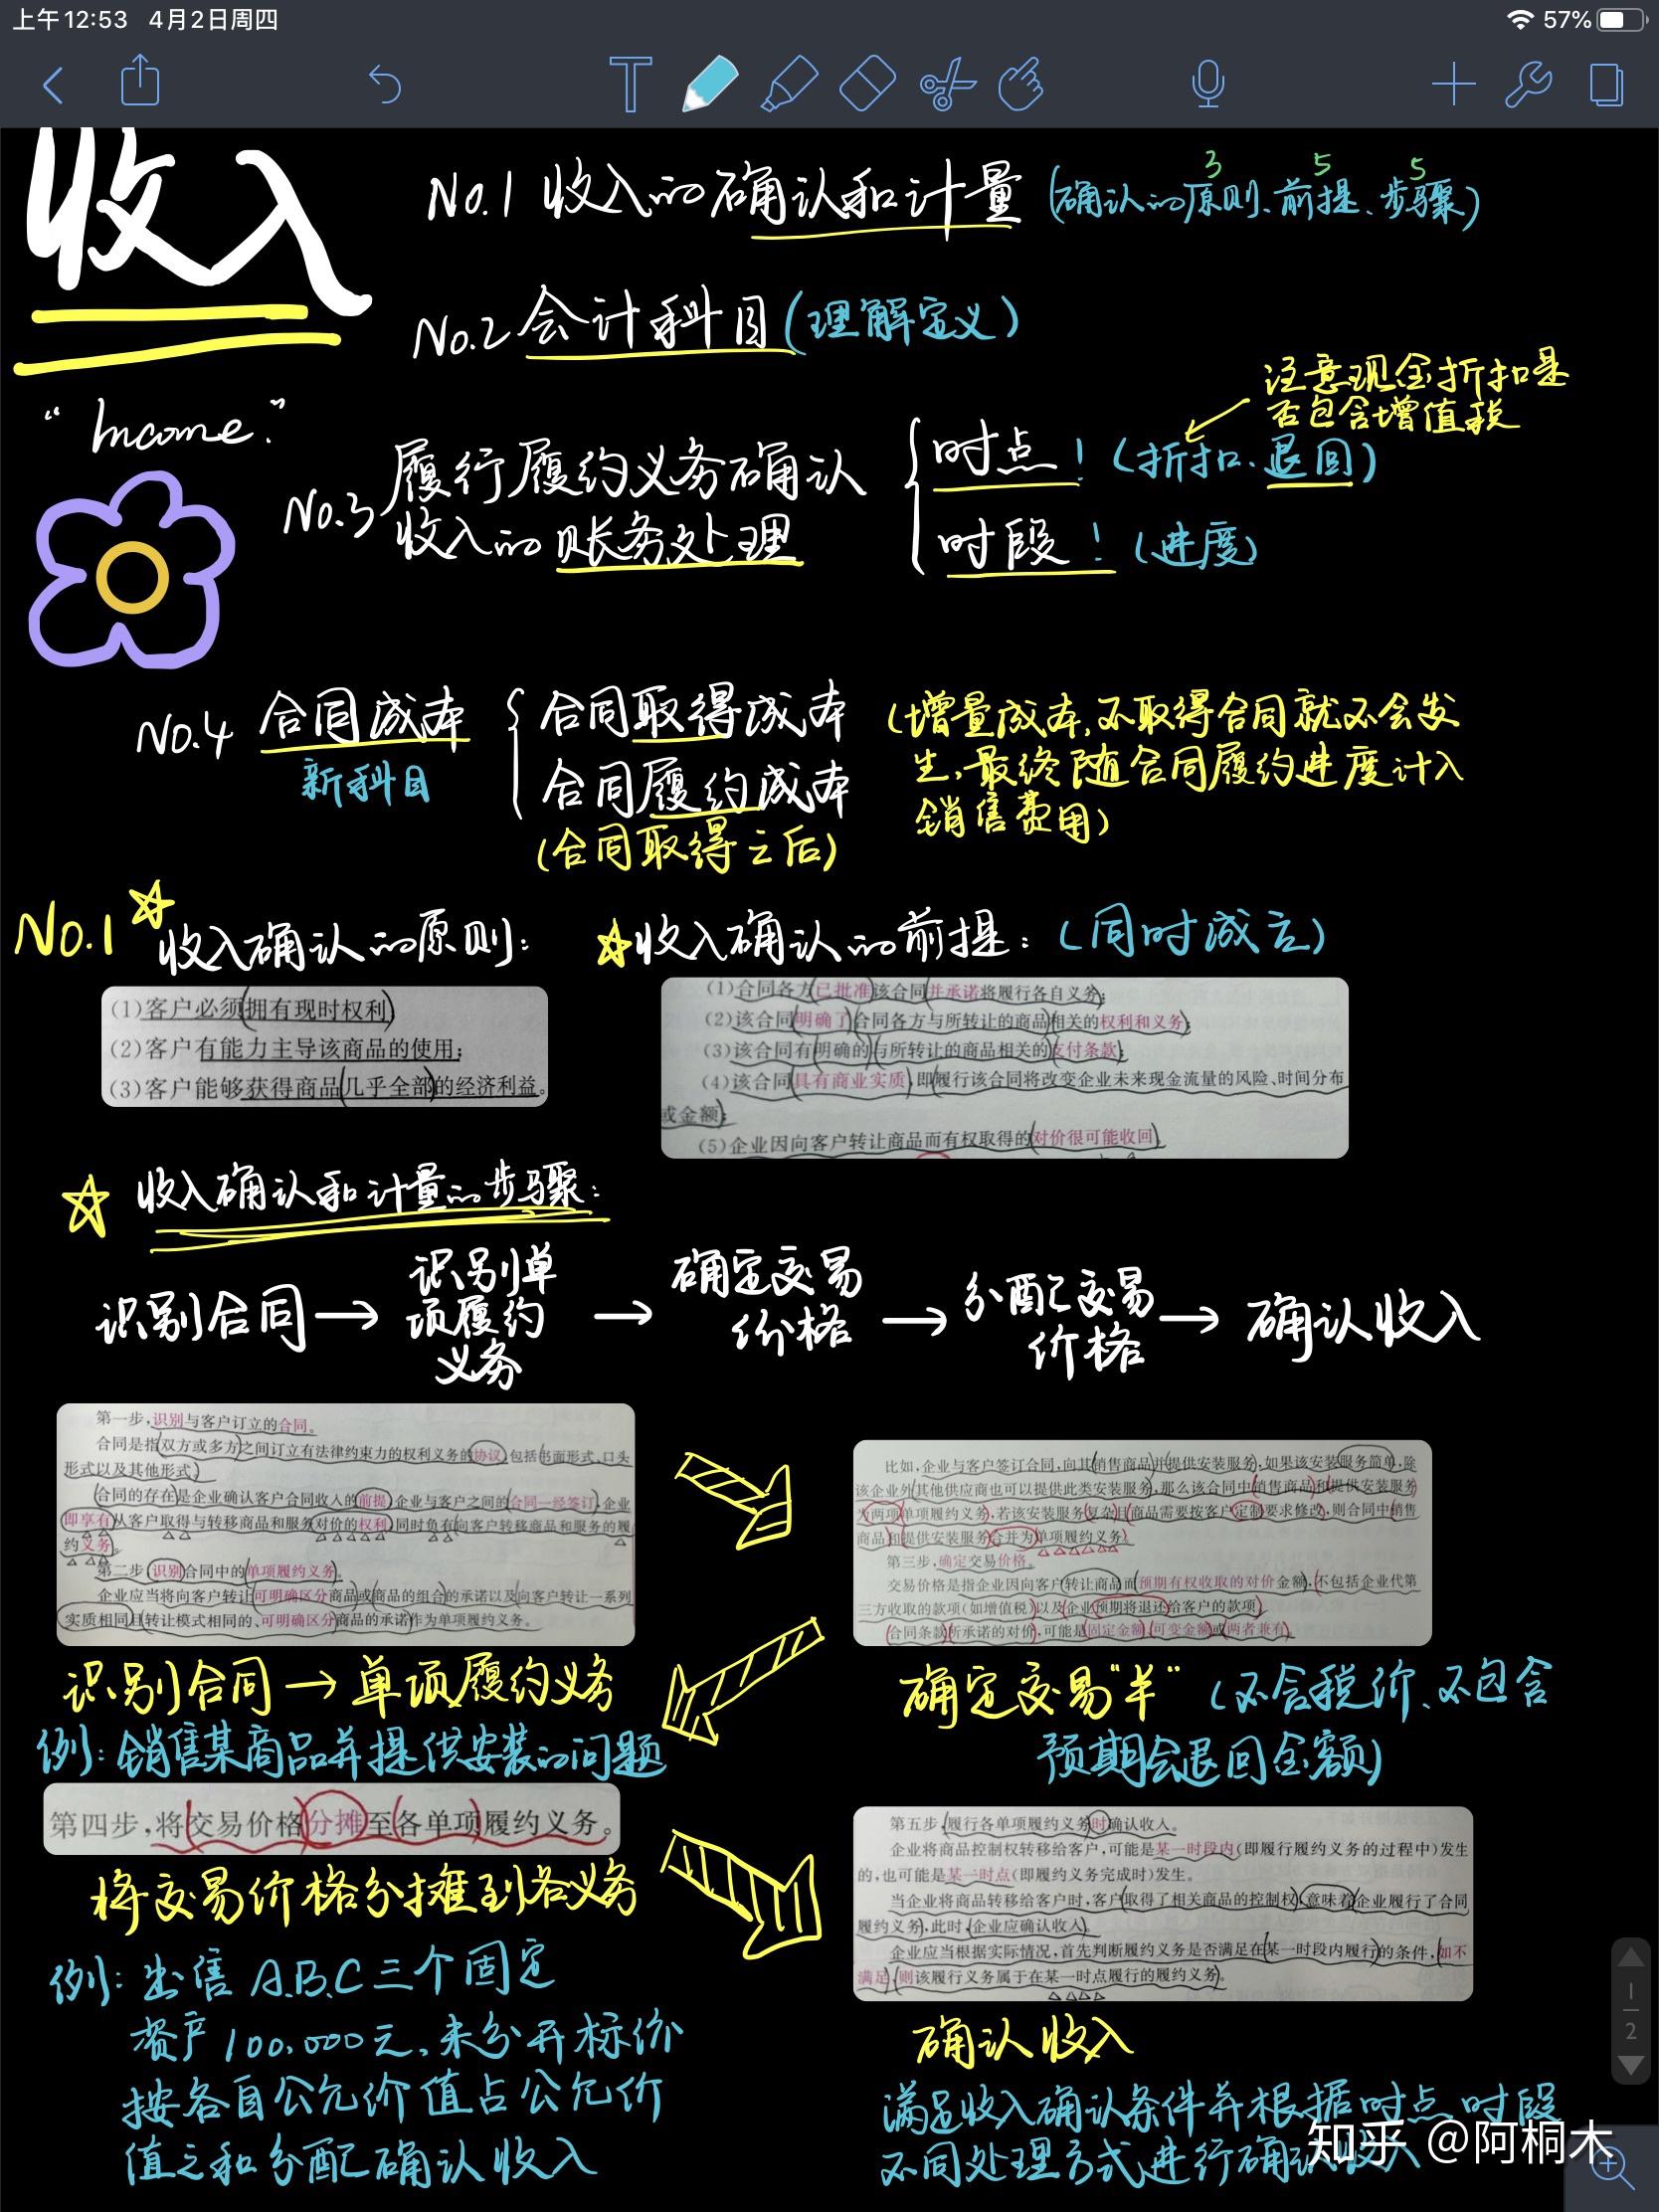 上午12:53 4月2日周四
57%
收入
No.1 收入的确认和计量 (确认的原则、前提、步骤)
3 5 5
No.2 会计科目(理解定义)
"Income."
注意现金折扣是
否包含增值税
No.3 履行履约义务确认
收入的账务处理
时点! (折扣、退回)
时段! (进度)
No.4 合同成本
新科目
合同取得成本
合同履约成本
(合同取得之后)
(增量成本,不取得合同就不会发
生,最终随合同履约进度计入
销售费用)
No.1
收入确认的原则:
(1)客户必须拥有现时权利
(2)客户有能力主导该商品的使用;
(3)客户能够获得商品几乎全部的经济利益。
收入确认的前提: (同时成立)
(1)合同各方已批准该合同并承诺将履行各自义务;
(2)该合同明确了合同各方与所转让的商品相关的权利和义务;
(3)该合同有明确的与所转让的商品相关的支付条款;
(4)该合同具有商业实质,即履行该合同将改变企业未来现金流量的风险、时间分布
或金额;
(5)企业因向客户转让商品而有权取得的对价很可能收回。
收入确认和计量的步骤:
识别合同→识别单
项履约
义务
→确定交易
价格
→分配交易
价格
→确认收入
第一步,识别与客户订立的合同。
合同是指双方或多方之间订立有法律约束力的权利义务的协议,包括书面形式、口头
形式以及其他形式。
合同的存在是企业确认客户合同收入的前提,企业与客户之间的合同一经签订,企业
即享有从客户取得与转移商品和服务对价的权利,同时负有向客户转移商品和服务的履
约义务。
第二步,识别合同中的单项履约义务。
企业应当将向客户转让可明确区分商品或商品的组合的承诺以及向客户转让一系列
实质相同且转让模式相同的、可明确区分商品的承诺作为单项履约义务。
比如,企业与客户签订合同,向其销售商品并提供安装服务,如果该安装服务简单,除
该企业外其他供应商也可以提供此类安装服务,那么该合同中销售商品和提供安装服务
为两项单项履约义务,若该安装服务复杂且商品需要按客户定制要求修改,则合同中销售
商品和提供安装服务合并为单项履约义务。
第三步,确定交易价格。
交易价格是指企业因向客户转让商品而预期有权收取的对价金额,不包括企业代第
三方收取的款项(如增值税)以及企业预期将退还给客户的款项。
合同条款所承诺的对价,可能是固定金额、可变金额或两者兼有。
识别合同→单项履约义务
例:销售某商品并提供安装的问题
确定交易"半" (不含税价、不包含
预期会退回金额)
第四步,将交易价格分摊至各单项履约义务。
将交易价格分摊到各义务
例:出售A.B.C三个固定
资产100,000元,未分开标价
按各自公允价值占公允价
值之和分配确认收入
第五步,履行各单项履约义务时确认收入。
企业将商品控制权转移给客户,可能是某一时段内(即履行履约义务的过程中)发生
的,也可能是某一时点(即履约义务完成时)发生。
当企业将商品转移给客户时,客户取得了相关商品的控制权,意味着企业履行了合同
履约义务,此时,企业应确认收入。
企业应当根据实际情况,首先判断履约义务是否满足在某一时段内履行的条件,如不
满足,则该履行义务属于在某一时点履行的履约义务。
确认收入
满足收入确认条件并根据时点、时段
不同处理方式进行确认收入
知乎 @阿桐木
1
2